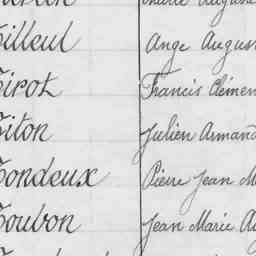 Tilleul Ange August
Tirot Francis Clémen
Titon Julien Armand
Tondeux Pierre Jean M
Toubon Jean Marie Au